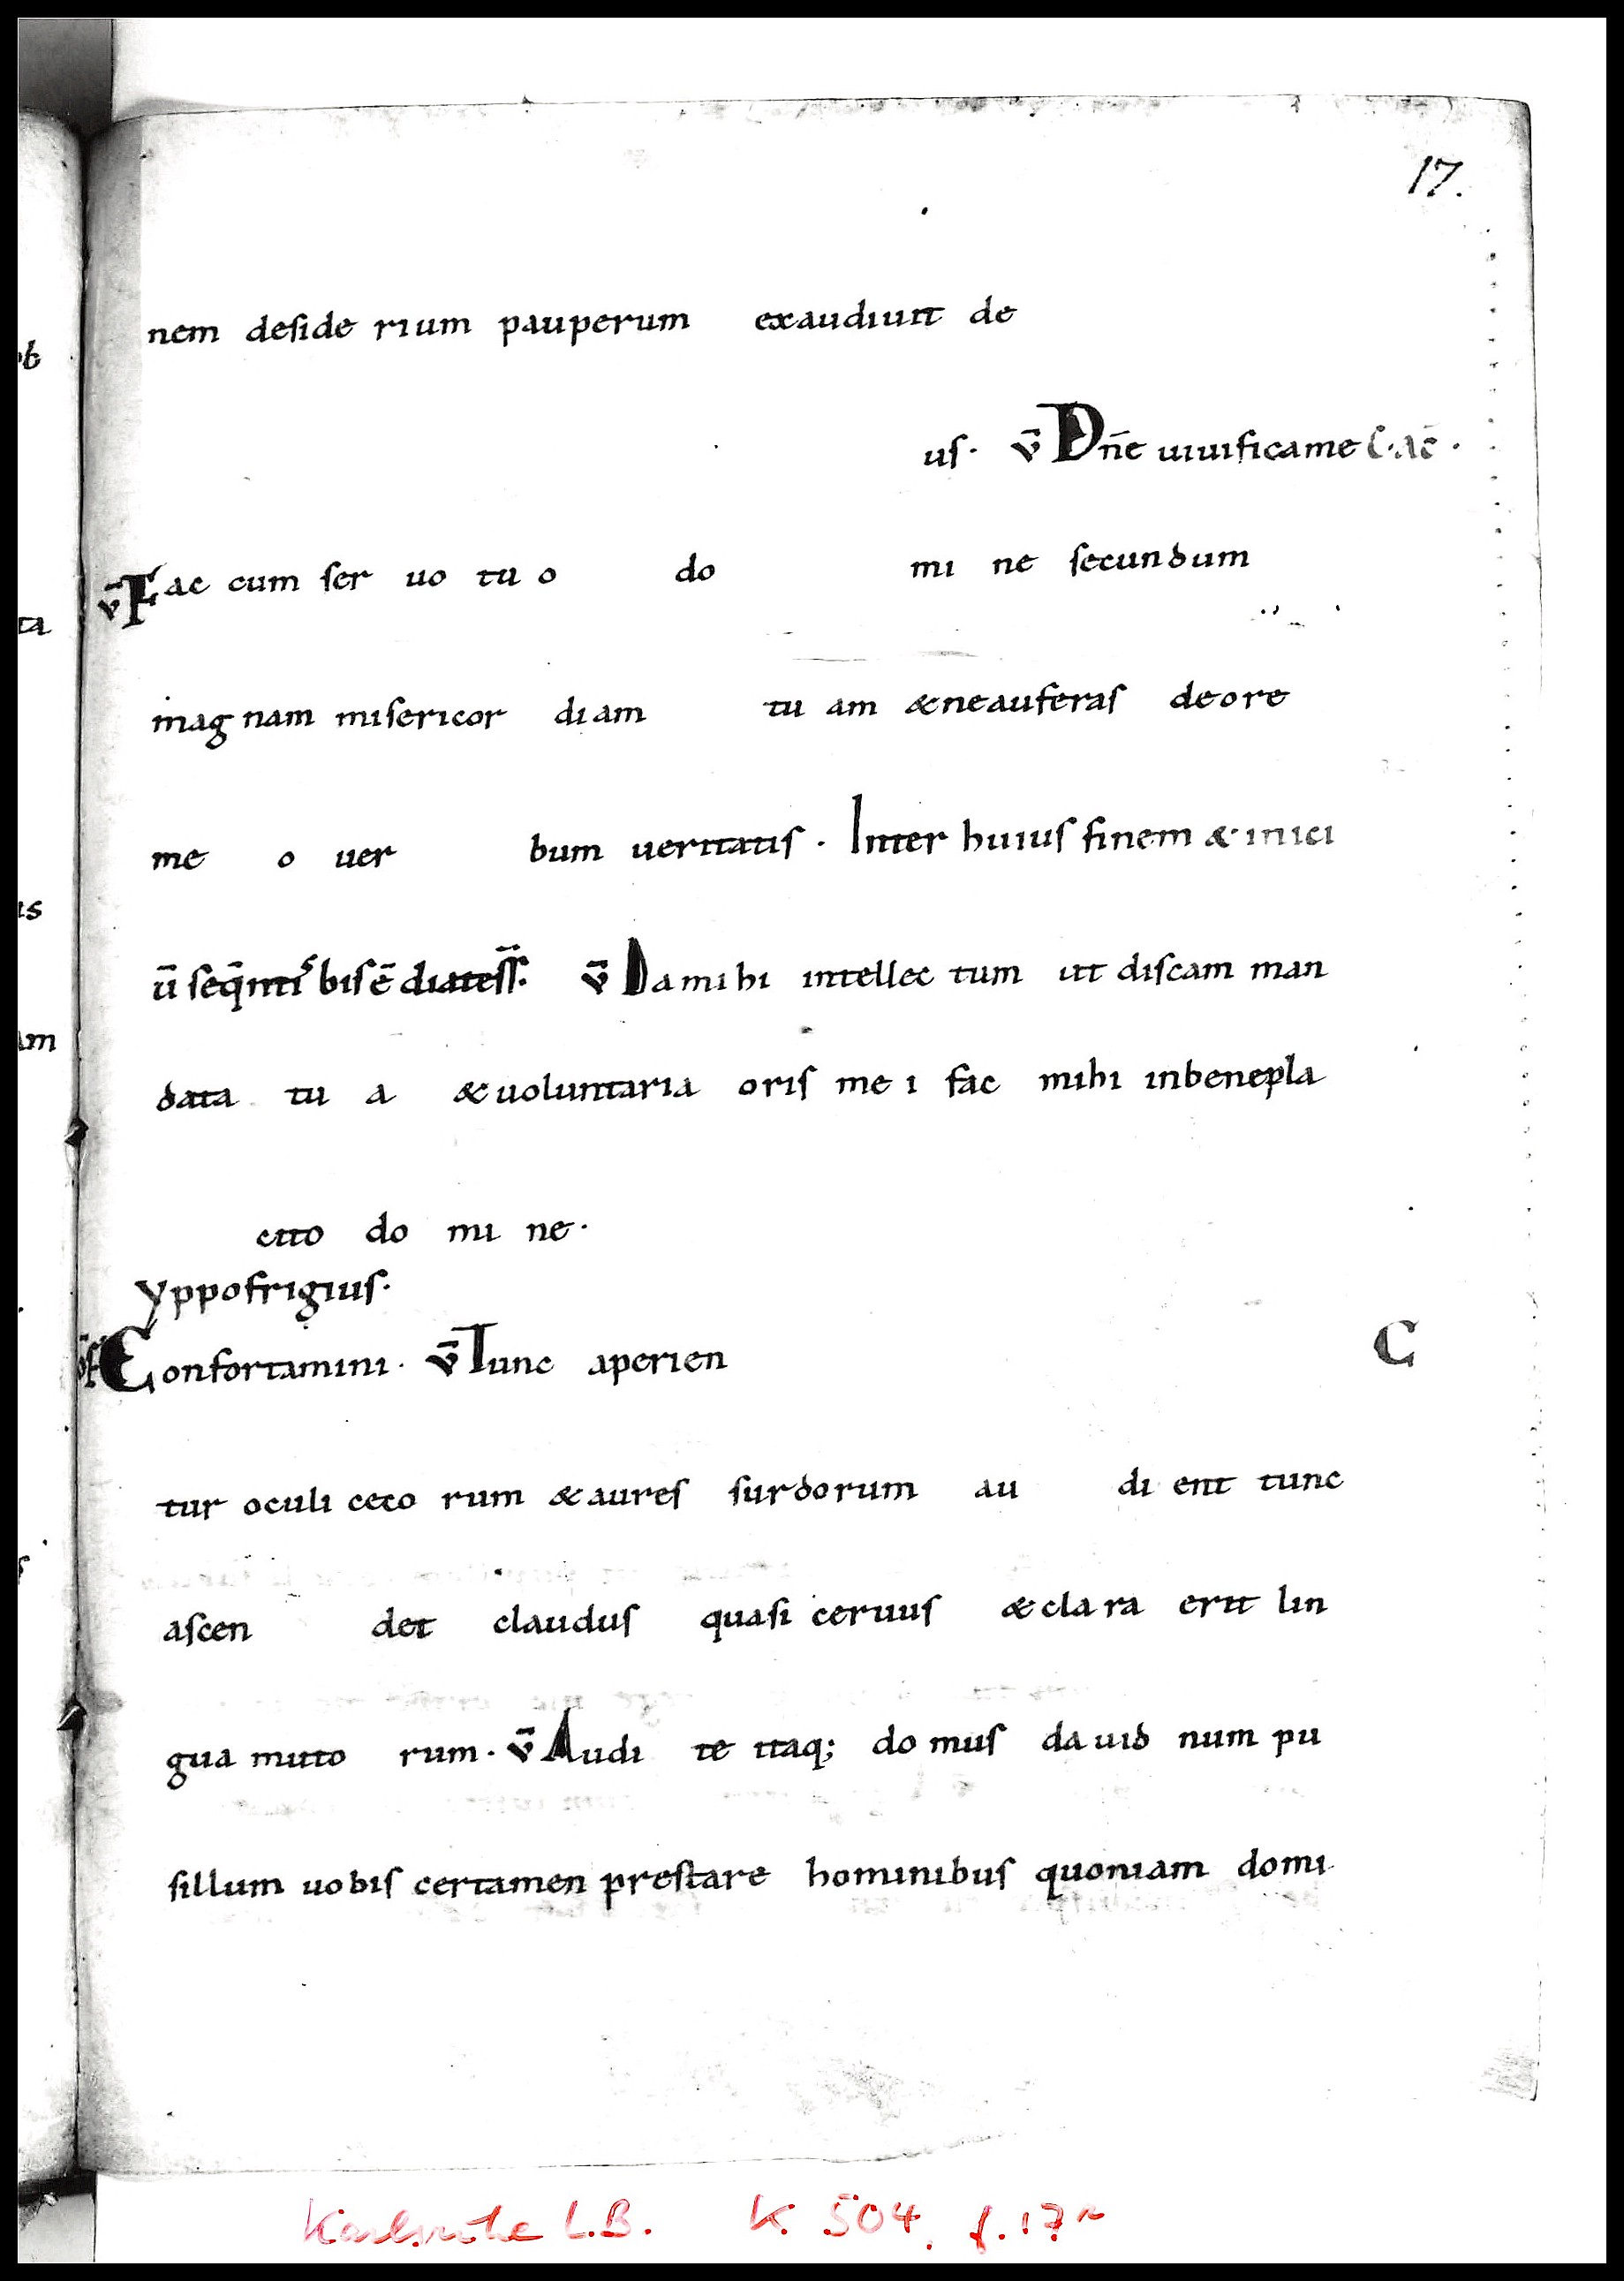 17.
nem deside rium pauperum exaudiuit de
us. v̄ Dn̄e uiuificame
v̄ Fac cum ser uo tu o do mi ne secundum
magnam misericor diam tu am &neauferas deore
me o uer bum ueritatis. Inter huius finem & inici
ū seq̄nti bis ē diatess̄. v̄ Damihi intellec tum ut discam man
data tu a &uoluntaria oris me i fac mihi inbenepla
cito do mi ne.
Yppofrigius.
Confortamini. v̄ Tunc aperien C
tur oculi ceco rum &aures surdorum au di ent tunc
ascen det claudus quasi ceruus &clara erit lin
gua muto rum. v̄ Audi te itaq; do mus dauid num pu
sillum uobis certamen prestare hominibus quoniam domi
Karlsruhe L.B. K. 504. f. 17r